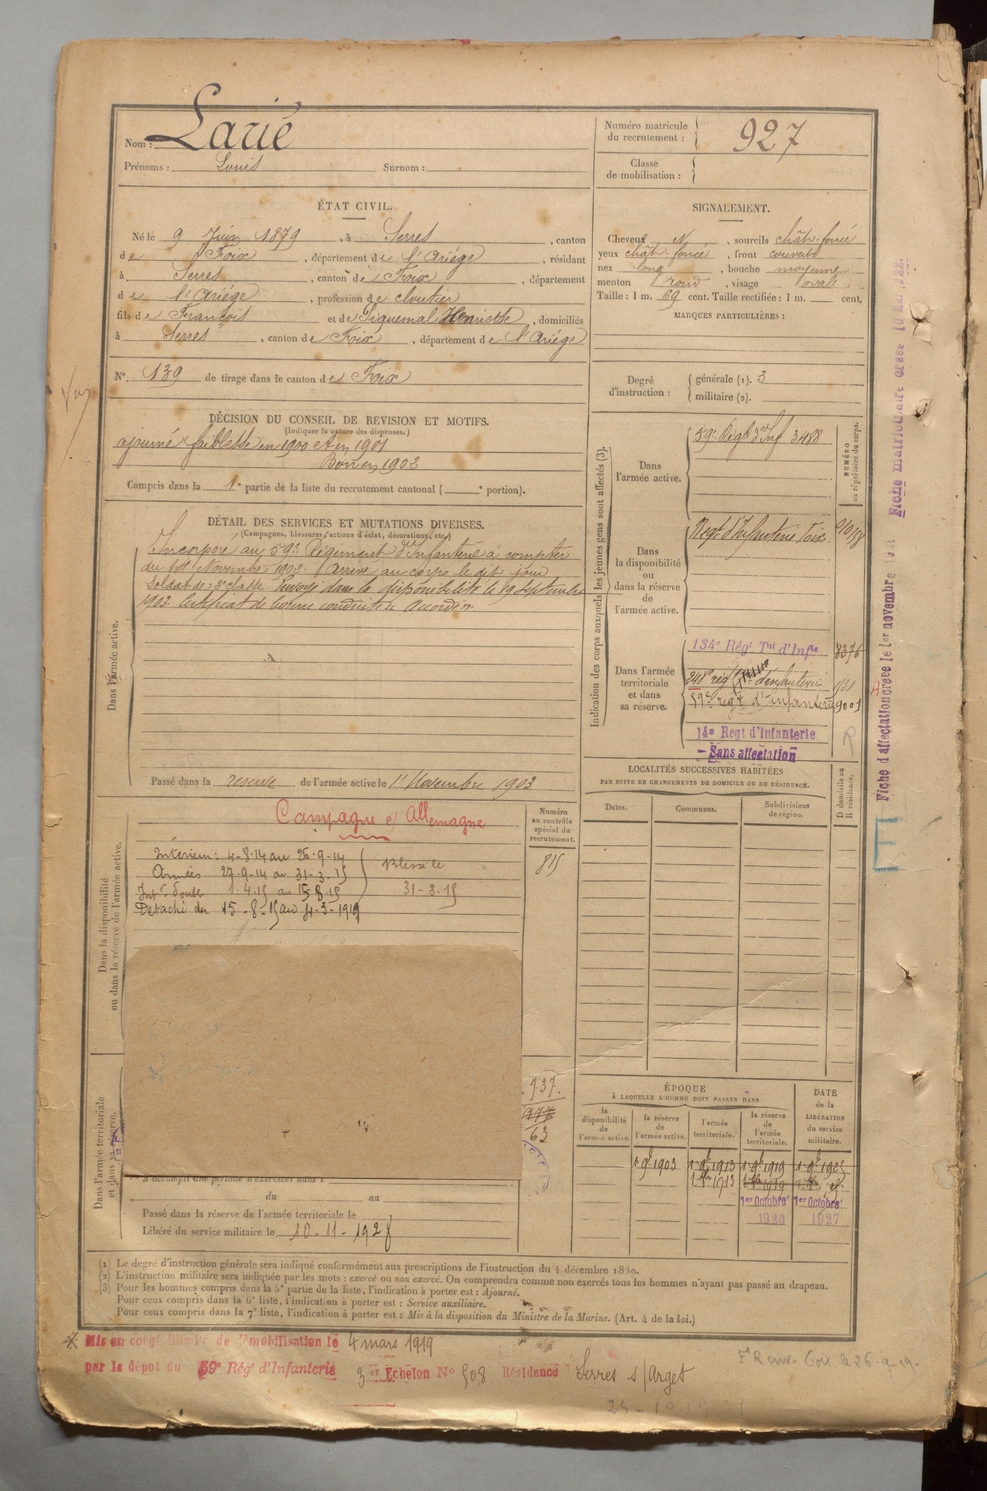 Nom : Larié
Prénoms : Louis Surnom :
Numéro matricule du recrutement : 927
Classe de mobilisation :
ÉTAT CIVIL.
Né le 9 Juin 1879, à Serres, canton
de Foix, département de l'Ariège, résidant
à Serres, canton de Foix, département
de l'Ariège, profession de cloutier
fils de François et de Siguemal Henriette, domiciliés
à Serres, canton de Foix, département de l'Ariège
N° 139 de tirage dans le canton de Foix
SIGNALEMENT.
Cheveux N, sourcils chât. foncé
yeux chât. foncé, front couvert
nez long, bouche moyenne
menton rond, visage ovale
Taille : 1 m. 69 cent. Taille rectifiée : 1 m. cent,
MARQUES PARTICULIÈRES :
Degré d'instruction : générale (1). 3
militaire (2).
DÉCISION DU CONSEIL DE REVISION ET MOTIFS.
(Indiquer la nature des dispenses.)
ajourné faiblesse en 1900 et en 1901
Bon en 1902
Compris dans la 1e partie de la liste du recrutement cantonal ( e portion).
DÉTAIL DES SERVICES ET MUTATIONS DIVERSES.
(Campagnes, blessures, actions d'éclat, décorations, etc.)
Dans l'armée active.
Incorporé au 59e Régiment d'Infanterie à compter
du Novembre 1902. Arrivé au corps le dit jour
soldat de 2e classe. Envoyé dans la disponibilité le 19 Septembre
1903. Certificat de bonne conduite Accordé.
Passé dans la réserve de l'armée active le 1er Novembre 1903
Indication des corps auxquels les jeunes gens sont affectés (3).
NUMÉRO au répertoire du corps.
Dans l'armée active.
59e Régt d'Inf 3488
Dans la disponibilité ou dans la réserve de l'armée active.
Regt d'Infanterie Foix
Dans l'armée territoriale et dans sa réserve.
134e Régt Tal d'Infie 3376
d'infanterie
59e regt d'infanterie 9001
14e Regt d'Infanterie
- Sans affectation
R
LOCALITÉS SUCCESSIVES HABITÉES
PAR SUITE DE CHANGEMENTS DE DOMICILE OU DE RÉSIDENCE.
Dates. Communes. Subdivisions de région. D domicile ou R résidence.
Dans la disponibilité ou dans la réserve de l'armée active.
Campagne c/ Allemagne
Intérieur : 4-8-14 au 26-9-14
Armées 27-9-14 au 31-3-15
1-4-15 au 15-8-15
Détaché du 15-8-15 au 4-3-1919
Blessé le
31-3-15
Numéro au contrôle spécial du recrutement.
815
737.
63
Dans l'armée territoriale et dans sa réserve.
A accompli une période d'exercices dans l
du au
Passé dans la réserve de l'armée territoriale le
Libéré du service militaire le 10-11-1928
ÉPOQUE
À LAQUELLE L'HOMME DOIT PASSER DANS
la disponibilité de l'armée active. la réserve de l'armée active. l'armée territoriale. la réserve de l'armée territoriale.
DATE de la LIBÉRATION du service militaire.
1 9bre 1903 1 9bre 1913 1 9bre 1919 1 9bre 1925
1er Octobre 1920 1er Octobre 1927
(1) Le degré d'instruction générale sera indiqué conformément aux prescriptions de l'instruction du 4 décembre 1889.
(2) L'instruction militaire sera indiquée par les mots : exercé ou non exercé. On comprendra comme non exercés tous les hommes n'ayant pas passé au drapeau.
(3) Pour les hommes compris dans la 5e partie de la liste, l'indication à porter est : Ajourné.
Pour ceux compris dans la 6e liste, l'indication à porter est : Service auxiliaire.
Pour ceux compris dans la 7e liste, l'indication à porter est : Mis à la disposition du Ministre de la Marine. (Art. 4 de la loi.)
Mis en congé illimité de démobilisation le 4 mars 1919
par le dépôt du 59e Rég' d'Infanterie 3e Echelon N° 508 Résidence Serres s/Arget
Foix le 26-9-19-
Fiche d'affectation créée le 1er novembre
Fiche matriculaire créée 10 mai